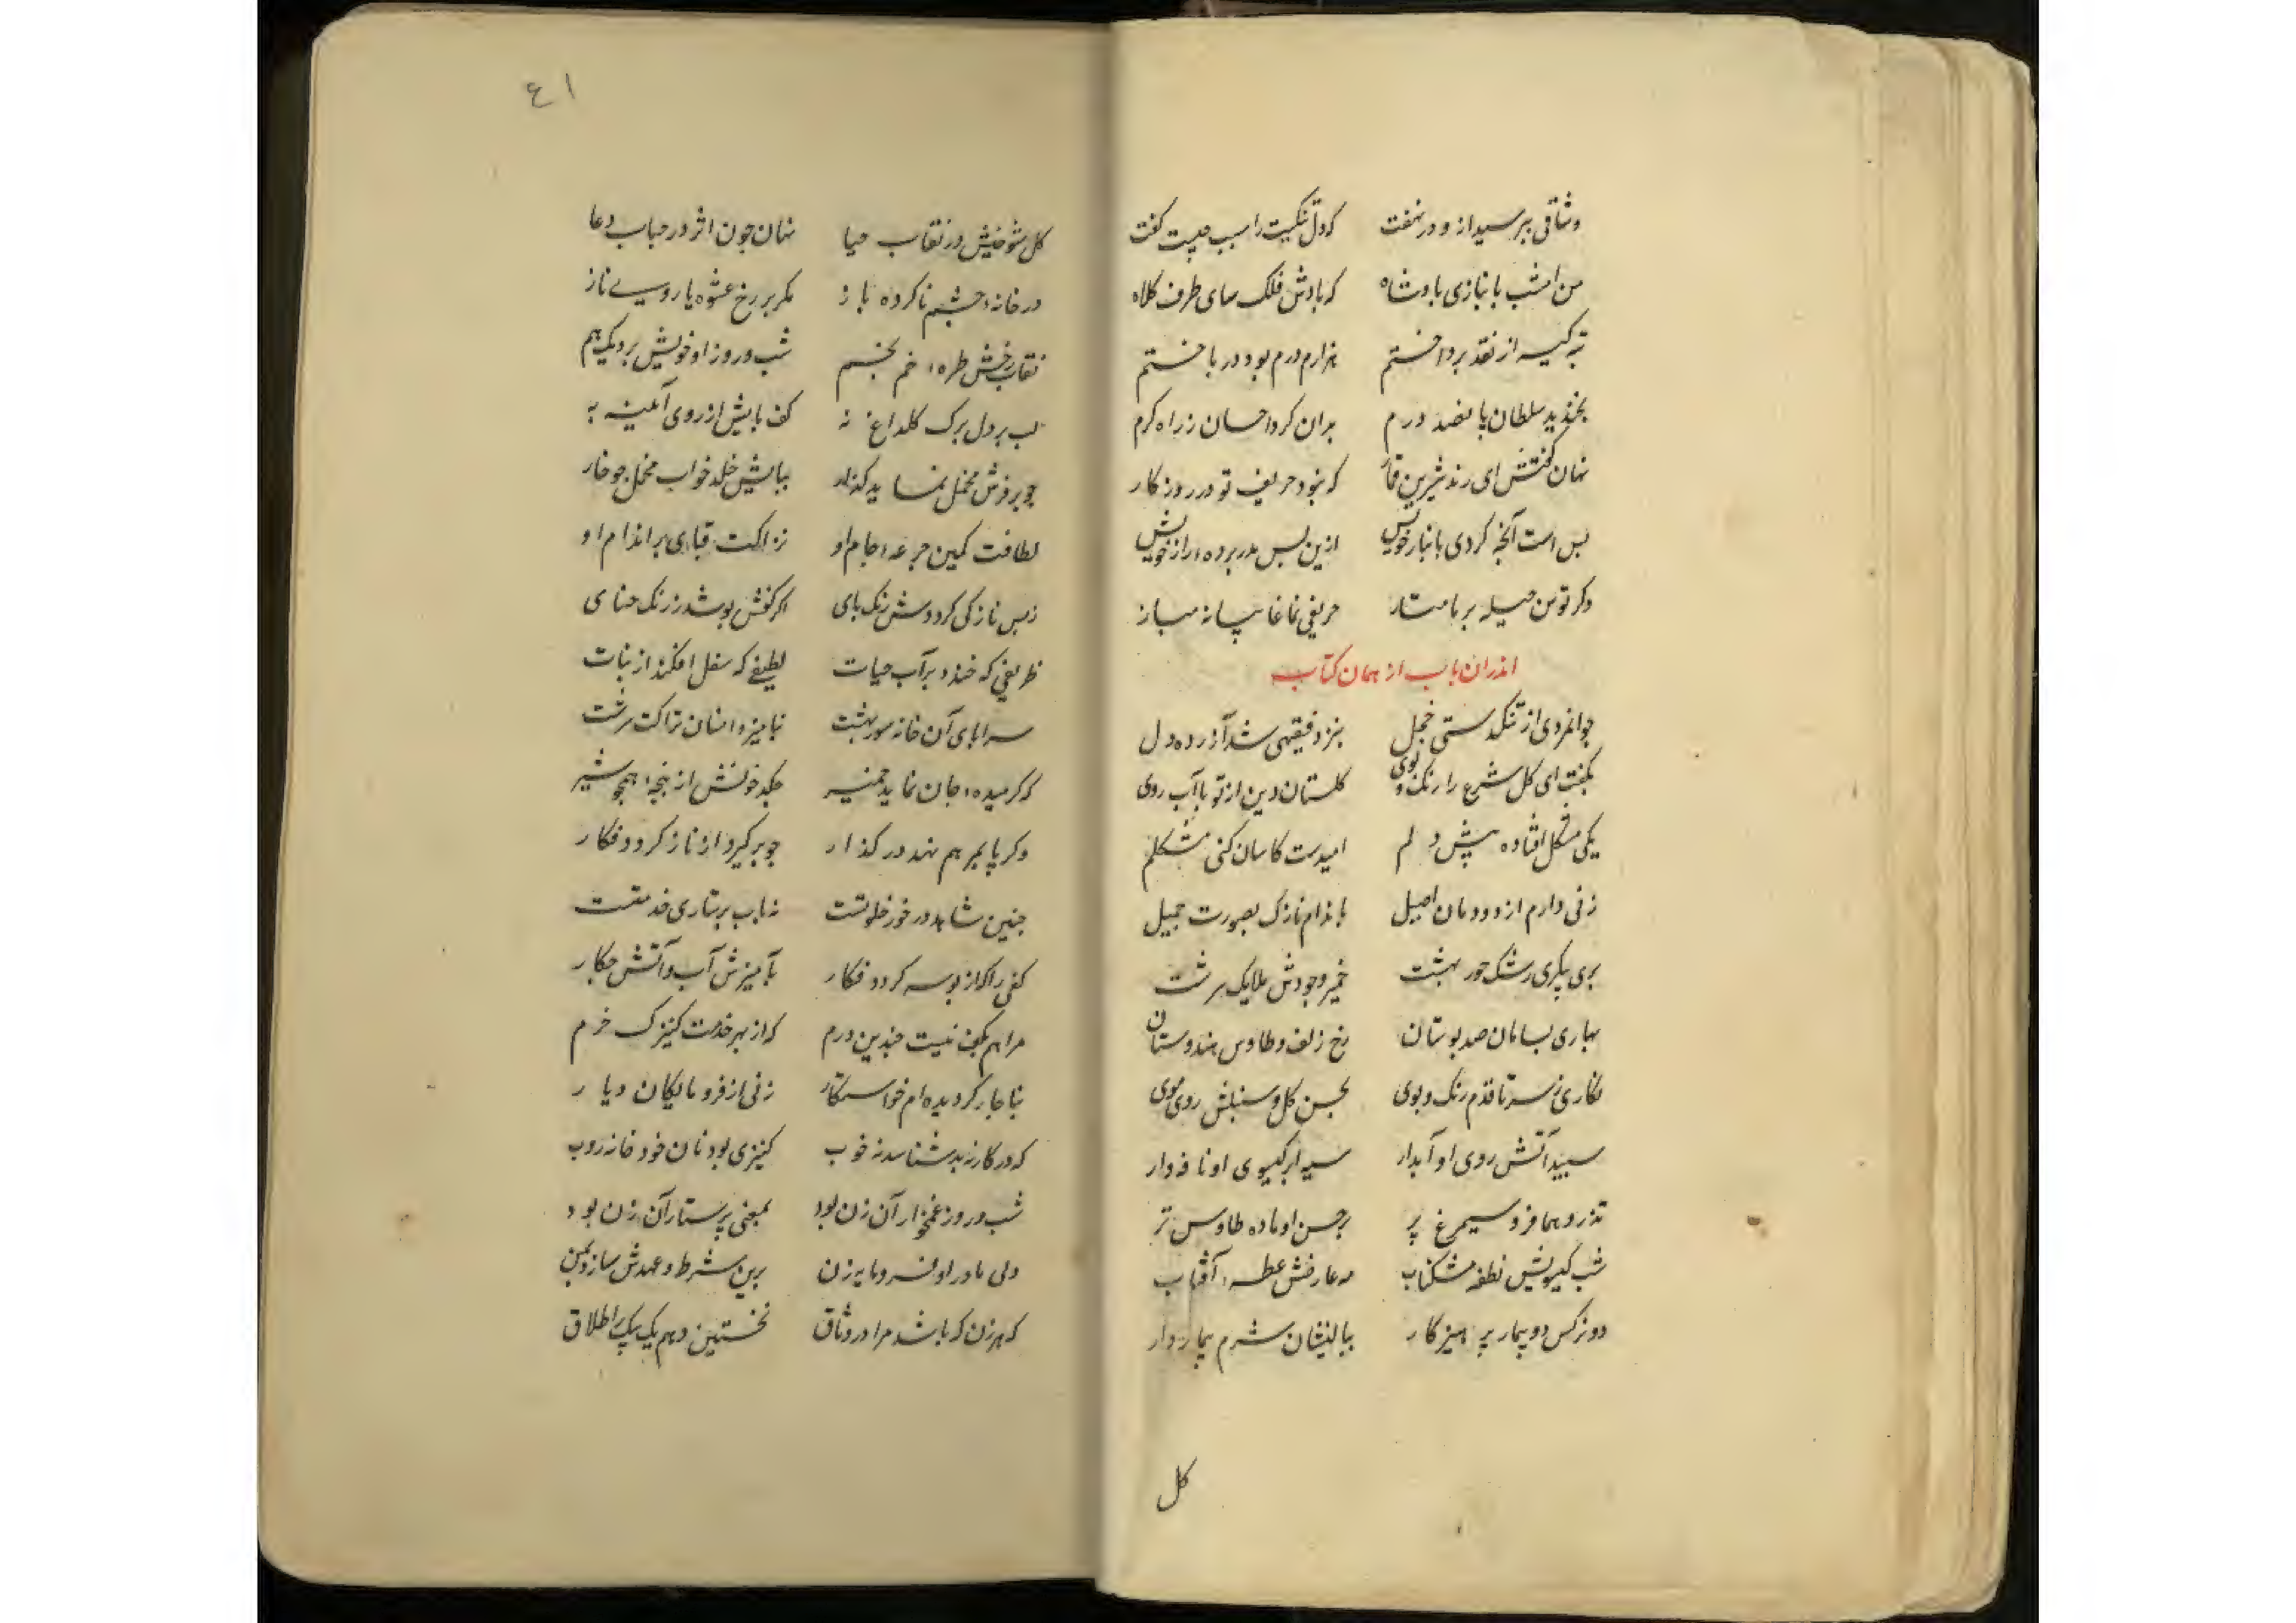 وثاقی بپرسید ازو در نهفت که دل تنکیت را سبب چیست کفت
من امشب ببازی با پادشاه که بادش فلک سای طرف کلاه
ته کیسه از نقد پرداختم هزارم درم بود در باختم
بخندید سلطان پانصد درم بدان کرد احسان ز راه کرم
نهان کفتش ای رند شیرین قمار که نبود حریف تو در روزکار
بس است آنچه کردی بانبار خویش ازین پس مدر پرده راز خویش
وکر توسن حیله بر ما متاز حریفی نما غایبانه مباز
اندران باب از همان کتاب
جوانمردی از تنکدستی خجل بنزد فقیهی شد آزرده دل
بکفت ای کل شرع را رنک و بوی کلستان دین از تو با آب روی
یکی مشکل افتاده پیش دلم امیدست کاسان کنی مشکلم
زنی دارم از دودمان اصیل باندام نازک بصورت جمیل
پری پیکری رشک حور بهشت خمیر وجودش ملایک سرشت
بهاری بسامان صد بوستان رخ و زلف طاوس هندوستان
نکاری ز سر تا قدم رنک و بوی بحسن کل و سنبلش روی موی
سپید آتش روی او آبدار سیه ابر کیسوی او نافه دار
تذرو هما فر و سیمرغ پر بر حسن او ماده طاوس نر
شب کیسویش نطفه مشکناب مه عارضش عطسه آفتاب
دو نرکس دو بیمار پرهیزکار ببالینشان شرم بیماردار
کل
٤١
کل شوخیش در نقاب حیا نهان چون اثر در حباب دعا
در خانه چشم ناکرده باز مکر بر رخ عشوه یا روی ناز
نقاب رخش طره خم بخم شب و روز او خویش نزدیک هم
لب بر دل برک کل داغ نه کف پایش از روی آئینه به
چو بر فرش مخمل نماید کذار بپایش خلد خواب مخمل چو خار
لطافت کمین جرعه جام او نزاکت قبای بر اندام او
ز بس نازکی کرددش رنک پای اکر کفش پوشد ز رنک حنای
ظریفی که خندد بر آب حیات لطیفی که سفل افکند از نبات
سراپای آن خانه سوز بهشت نیامیزد انسان نزاکت سرشت
که کر میده جان نماید خمیر چکد خونش از پنجه همچو شیر
وکر پا بمرهم نهد در کذار چو برکیرد از ناز کردد فکار
چنین شاهد در خور خلوتست نه باب پرستاری خدمتست
کفی را کو از بوسه کردد فکار بآمیزش آب و آتش چکار
مرا هم بکف نیست چندین درم که از بهر خدمت کنیزک خرم
بناچار کردیده‌ام خواستکار زنی از فرومایکان دیار
که در کار نه بد شناسد نه خوب کنیزی بود نان خور خانه روب
شب و روز غمخوار آن زن بود بمعنی پرستار آن زن بود
ولی مادر او فرومایه زن برین شرط و عهدش سازد بمن
که هر زن که باشد مرا در وثاق نخستین دهم یک بیک را طلاق